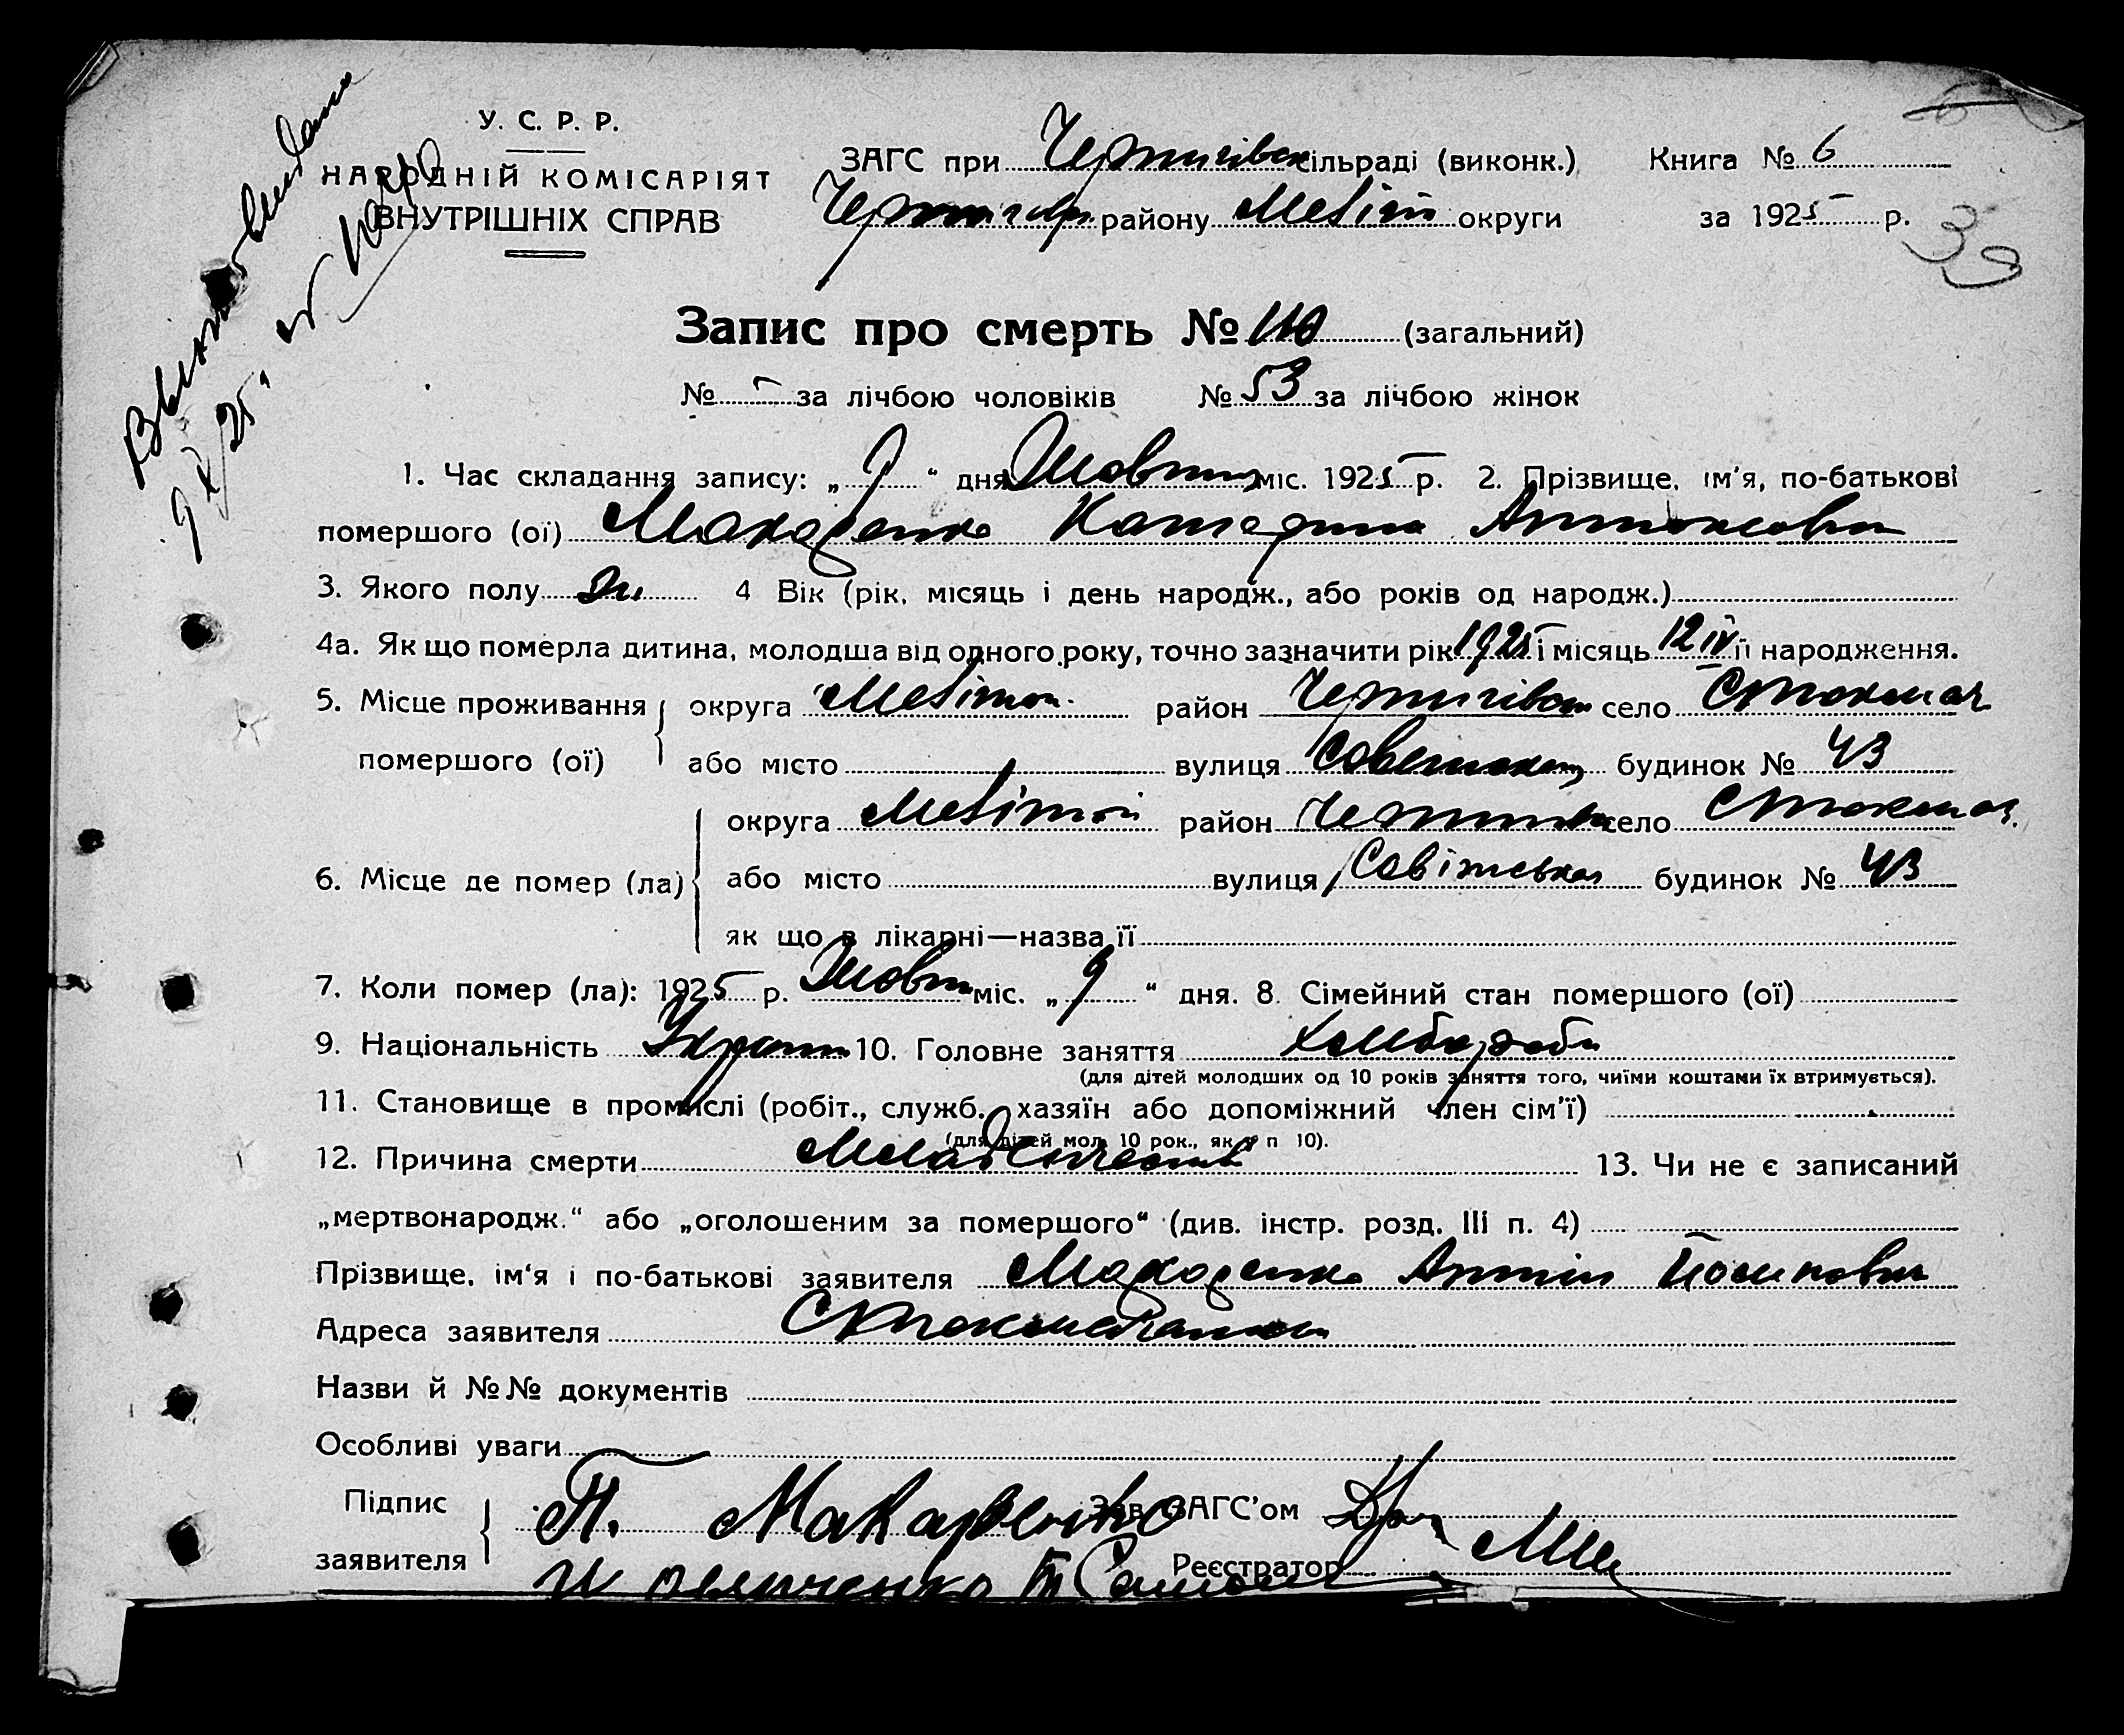 У. С. Р. Р.
НАРОДНІЙ КОМІСАРІЯТ
ВНУТРІШНІХ СПРАВ
ЗАГС при Чернигівск сільраді (виконк.)
Книга № 6
району Меліт округи
за 1925 р.
39
Запис про смерть № 110 (загальний)
№ - за лічбою чоловіків № 53 за лічбою жінок
1. Час складання запису: „ 9 “ дня Жовтня міс. 1925 р. 2. Прізвище, ім'я, по-батькові
помершого (ої) Макаренко Катерина Антоновна
3. Якого полу ж 4 Вік (рік, місяць і день народж., або років од народж.)
4а. Як що померла дитина, молодша від одного року, точно зазначити рік 1925 і місяць 12 IV її народження.
5. Місце проживання округа Меліто район Чернигівск село Стокмач
помершого (ої) або місто вулиця Советская будинок № 43
округа Мелітой район село Стокмач
6. Місце де помер (ла) або місто вулиця Совітська будинок № 43
як що в лікарні—назва її
7. Коли помер (ла): 1925 р. Жовтн міс. „ 9 “ дня. 8. Сімейний стан помершого (ої)
9. Національність Украин 10. Головне заняття хлібороби
(для дітей молодших од 10 років заняття того, чиїми коштами їх втримується).
11. Становище в промислі (робіт., служб., хазяїн або допоміжний член сім'ї)
(для дітей мол. 10 рок., як в п 10).
12. Причина смерти Младенческий 13. Чи не є записаний
„мертвонародж.“ або „оголошеним за помершого“ (див. інстр. розд. III п. 4)
Прізвище, ім'я і по-батькові заявителя Макаренко Антін Йосипович
Адреса заявителя
Назви й №№ документів
Особливі уваги
Підпис
заявителя
П. Макаренко
Зав. ЗАГС'ом
Реєстратор